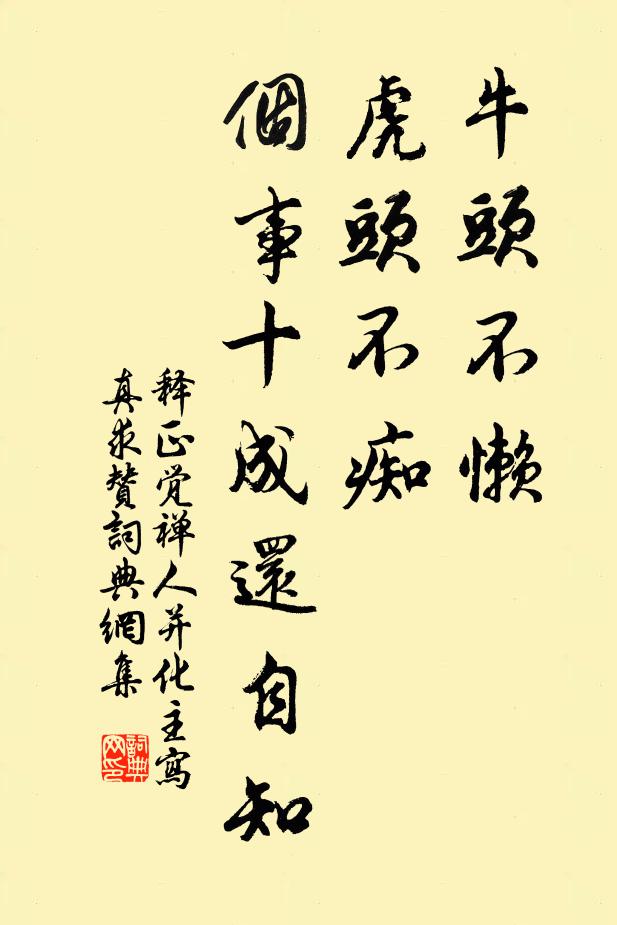 牛頭不懶
虎頭不痴
個事十成還自知
释正觉禅人并化主寫
真求賛詞典網集
詞典
网印